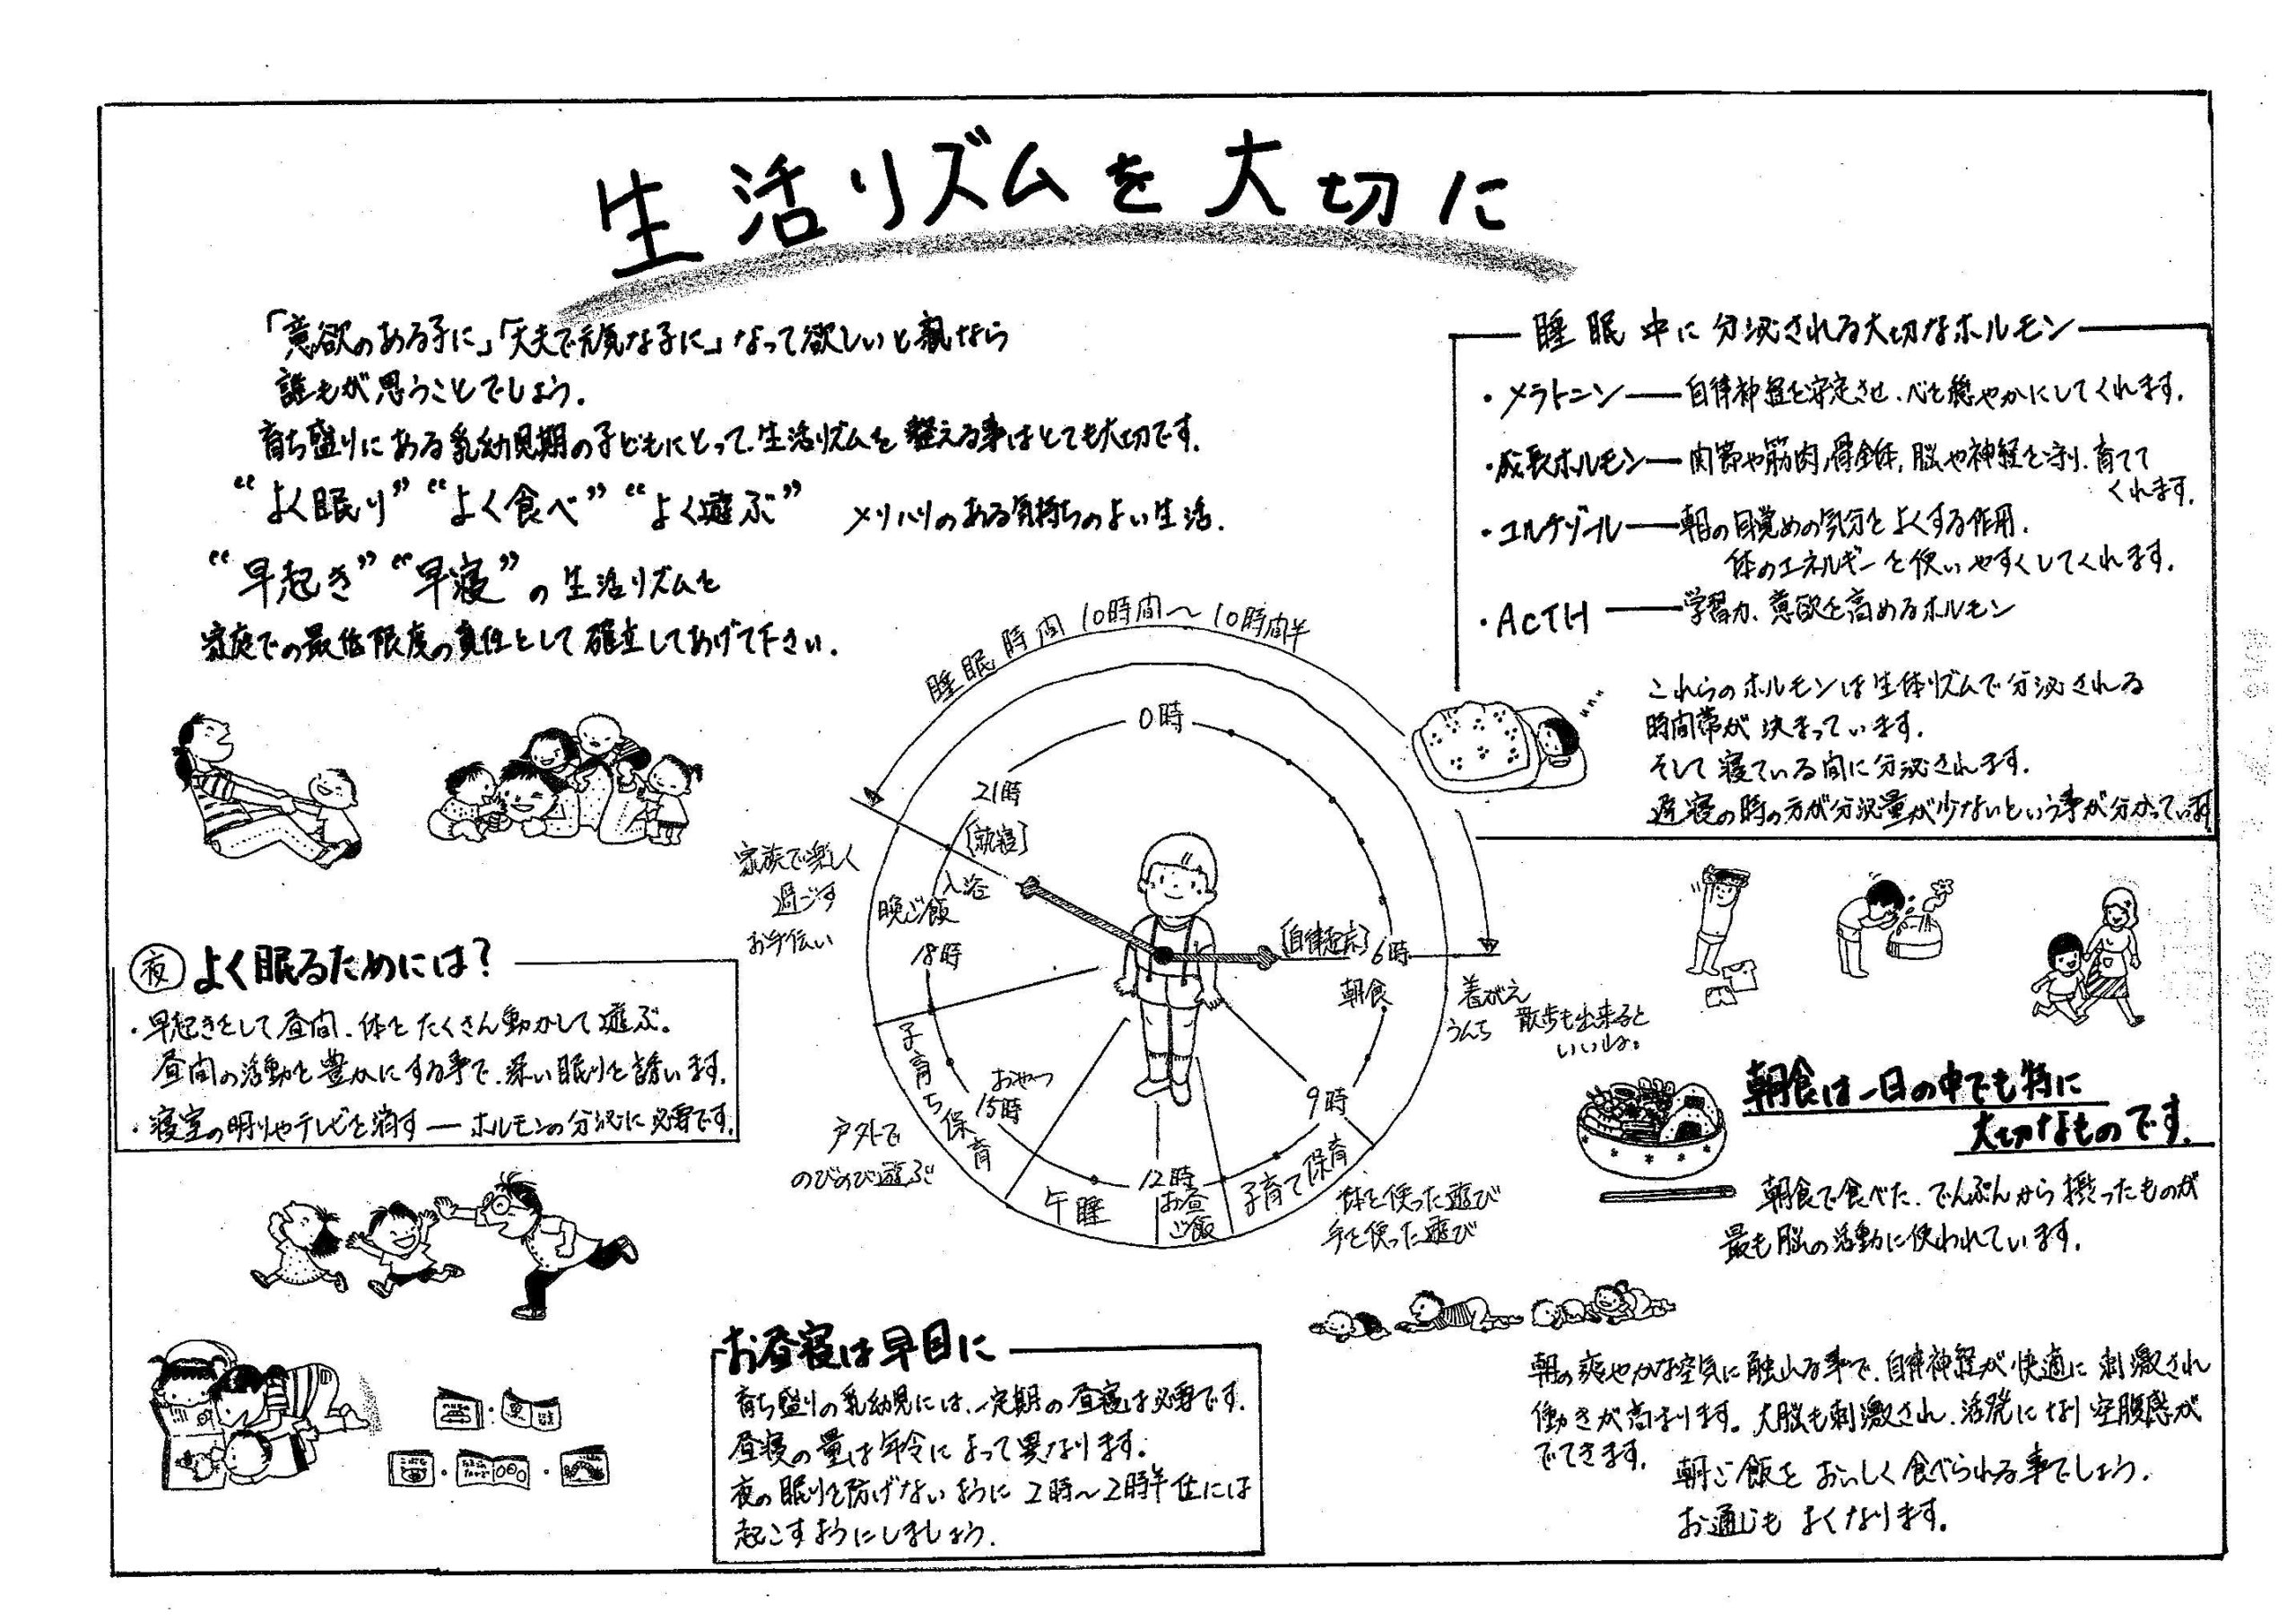 生活リズムを大切に
「意欲のある子に」「丈夫で元気な子に」なって欲しいと親なら
誰もが思うことでしょう.
育ち盛りにある乳幼児期の子どもにとって、生活リズムを整える事はとても大切です.
“よく眠り” “よく食べ” “よく遊ぶ” メリハリのある気持ちのよい生活.
“早起き” “早寝” の生活リズムを
家庭での最低限度の責任として確立してあげて下さい.
睡眠中に分泌される大切なホルモン
・メラトニン ― 自律神経を安定させ、心を穏やかにしてくれます.
・成長ホルモン ― 関節や筋肉、骨全体、脳や神経を守り、育てて
くれます.
・コルチゾール ― 朝の目覚めの気分をよくする作用.
体のエネルギーを使いやすくしてくれます.
・ACTH ― 学習力、意欲を高めるホルモン
これらのホルモンは生体リズムで分泌される
時間帯が決まっています.
そして寝ている間に分泌されます.
遅寝の時の方が分泌量が少ないという事が分かっています
睡眠時間 10時間〜10時間半
0時
21時
[就寝]
入浴
晩ご飯
18時
家族で楽しく
過ごす
お手伝い
[自律起床]
6時
朝食
着がえ
うんち
散歩も出来ると
いいね。
9時
子育て保育
体を使った遊び
手を使った遊び
12時
お昼
ご飯
午睡
おやつ
15時
子育ち保育
戸外で
のびのび遊ぶ
夜 よく眠るためには?
・早起きをして昼間、体をたくさん動かして遊ぶ。
昼間の活動を豊かにする事で、深い眠りを誘います.
・寝室の明りやテレビを消す ― ホルモンの分泌に必要です.
お昼寝は早目に
育ち盛りの乳幼児には、一定期の昼寝は必要です.
昼寝の量は年令によって異なります.
夜の眠りを防げないように2時〜2時半位には
起こすようにしましょう.
朝食は一日の中でも特に
大切なものです.
朝食で食べた、でんぷんから摂ったものが
最も脳の活動に使われています.
朝の爽やかな空気に触れる事で、自律神経が快適に刺激され
働きが高まります。大脳も刺激され、活発になり空腹感が
でてきます.
朝ご飯をおいしく食べられる事でしょう.
お通じもよくなります.